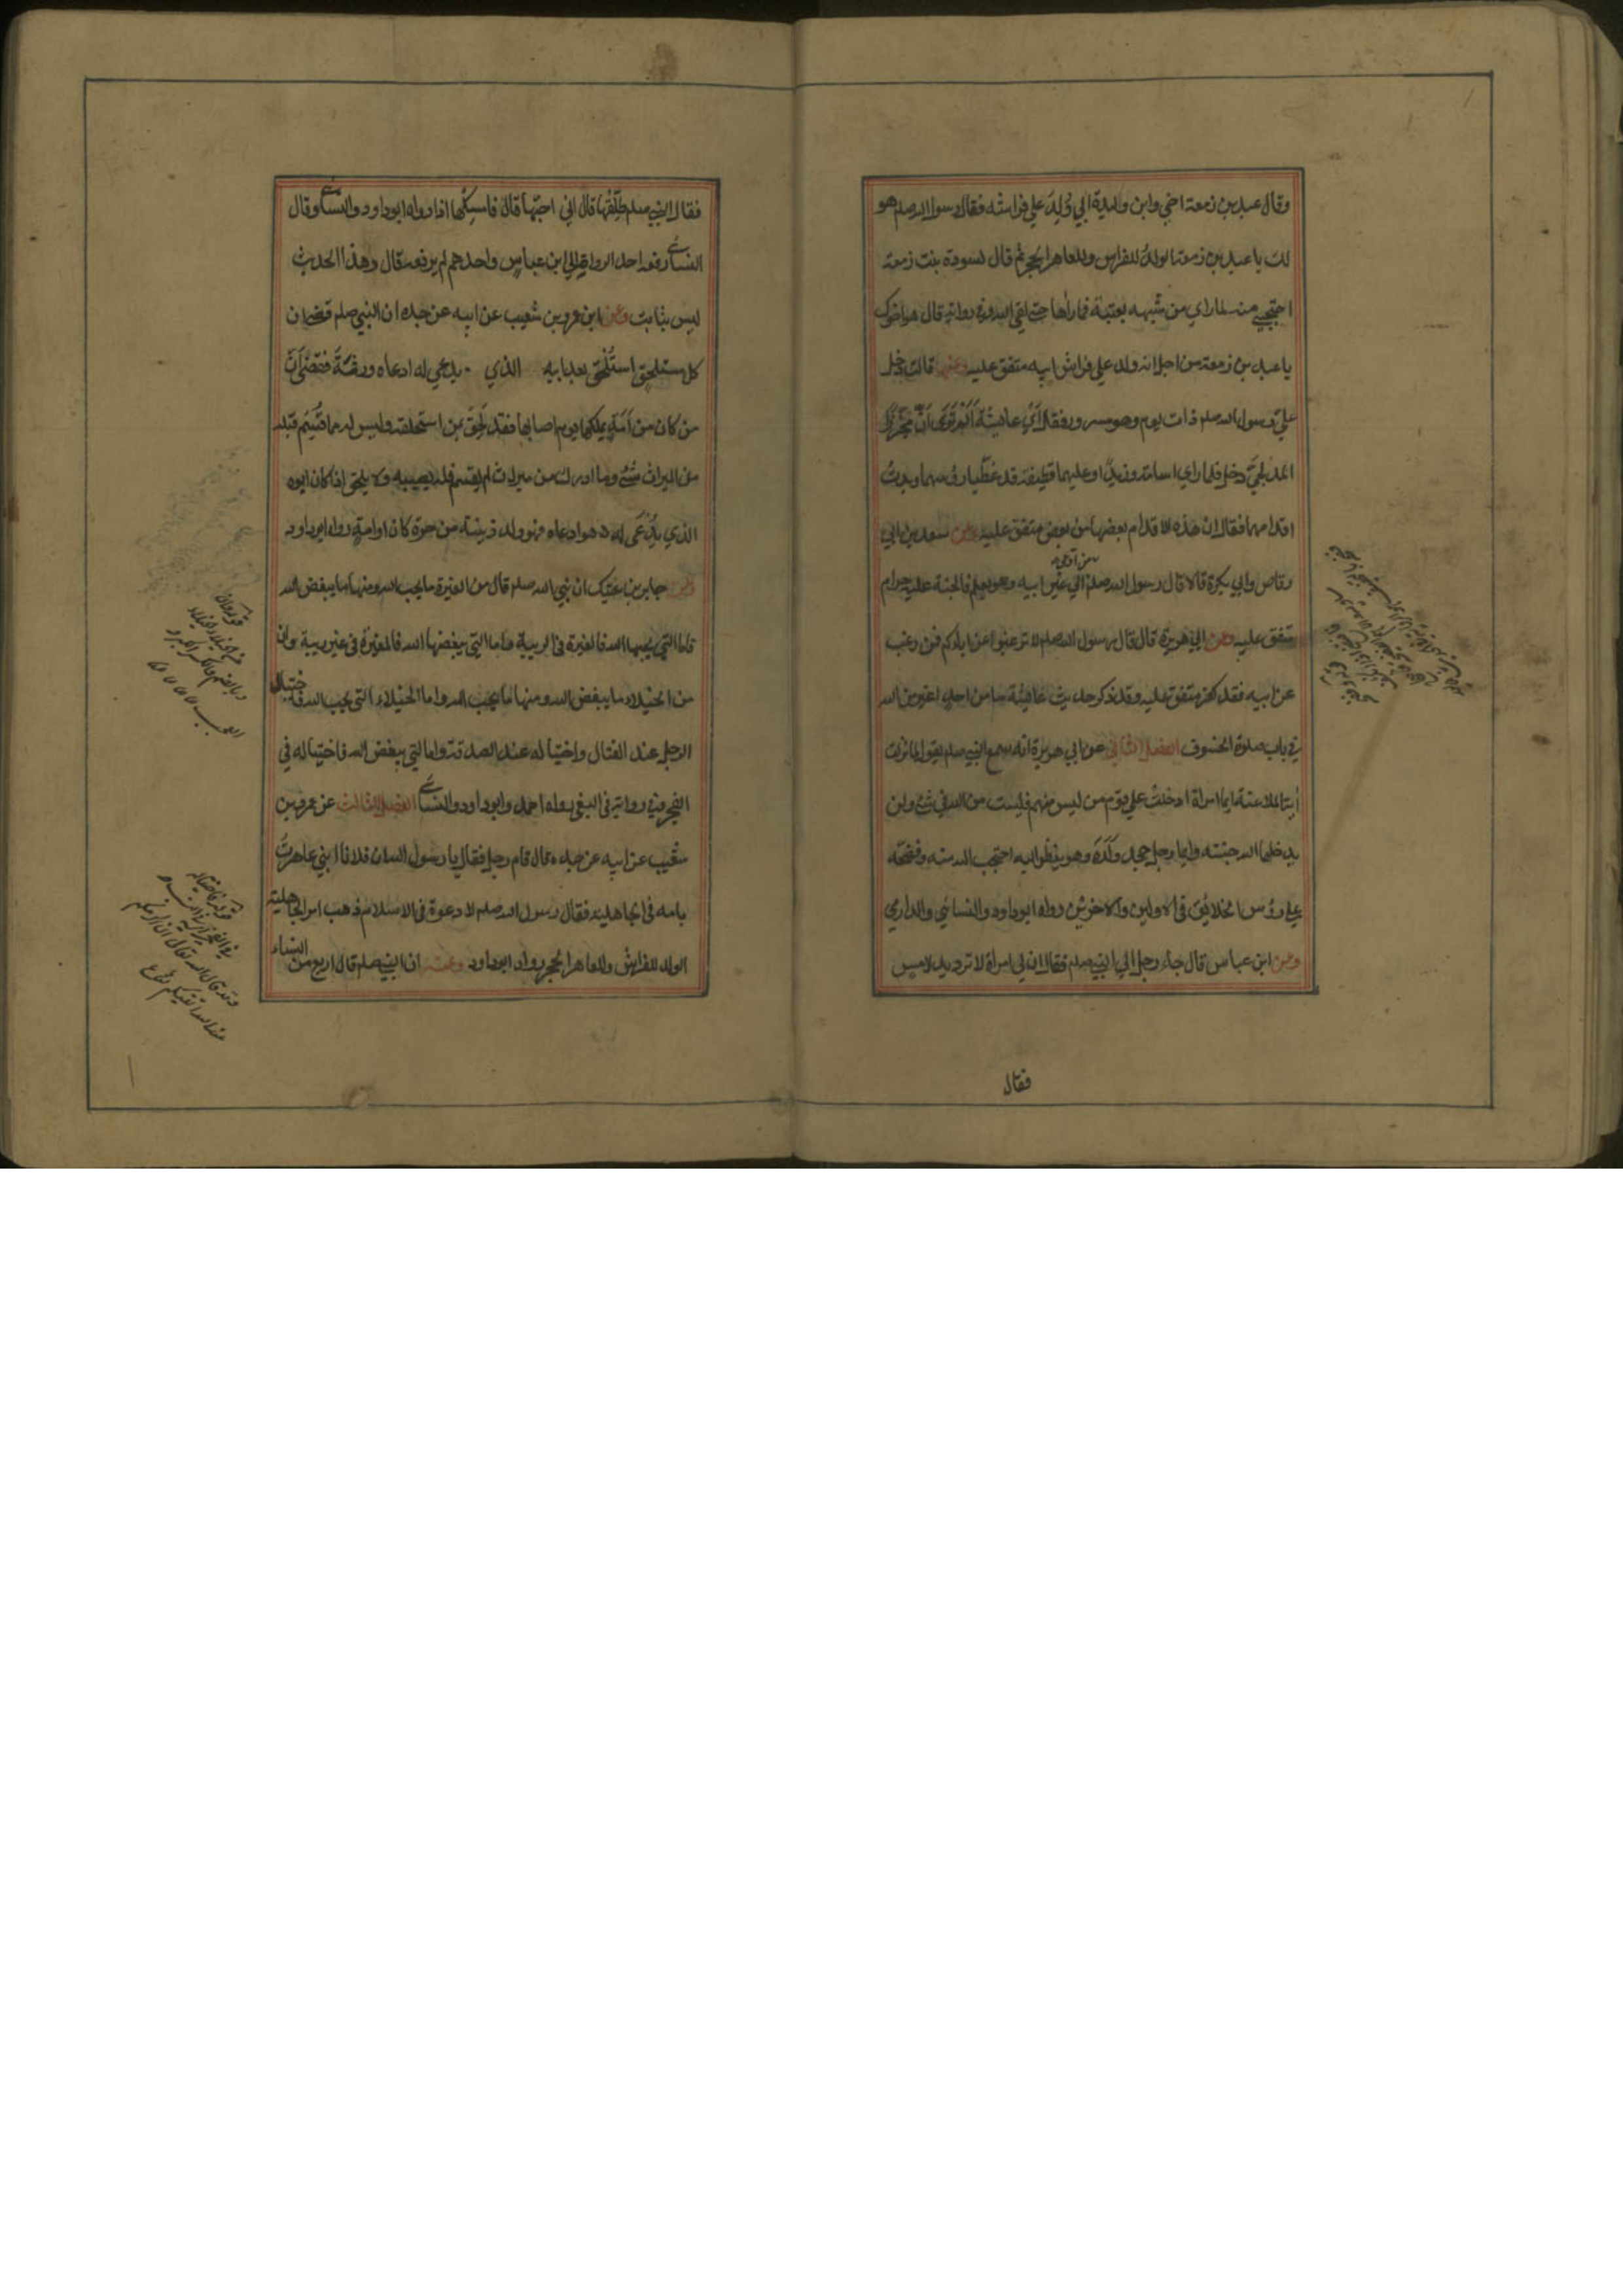 وقال عبد بن زمعة اخي وابن وليدة ابي وُلِدَ علي فراشه فقال رسول الله صلعم هو
لك يا عبد بن زمعة الولدُ للفراش وللعاهر الحجر ثم قال لسودة بنت زمعة
احتجبي منه لما راي من شبهه بعتبة فما راها حتى لقي الله وفي رواية قال هو اخوك
يا عبد بن زمعة من اجل انه ولد علي فراش ابيه متفق عليه وعنها قالت دخل
عليّ رسول الله صلم ذات يوم وهو مسرور فقال اَيْ عايشة اَلَمْ تَرَيْ اَنَّ مُجَزِّزًا
المدلجيَّ دخل فلما راي اسامة وزيدًا وعليهما قطيفة قد غطّيا رؤسهما وبدتْ
اقدامهما فقال ان هذه الاقدام بعضها من بعض متفق عليه وعن سعد بن ابي
وقاص وابي بكرة قالا قال رسول الله صلم من ادعي الي غير ابيه وهو يعلم فالجنة عليه حرام
متفق عليه وعن ابي هريرة قال قال رسول الله صلم لا ترغبوا عن ابائكم فمن رغب
عن ابيه فقد كفر متفق عليه وقد ذكر حديث عايشة ما من احدٍ اغير من الله
في باب صلوة الخسوف الفصل الثاني عن ابي هريرة انه سمع النبي صلم يقول لما نزلت
اٰية الملاعنة ايما امراة ادخلتْ علي قوم من ليس منهم فليست من الله في شيء ولن
يدخلها الله جنته وايما رجل جحد وَلَدَهُ وهو ينظر اليه احتجب الله منه وفضحه
علي رؤس الخلائق في الاولين والاخرين رواه ابوداود والنسائي والدارمي
وعن ابن عباس قال جاء رجل الي النبي صلم فقال ان لي امراة لا ترد يد لامس
فقال
فقال النبي صلم طلِّقْها قال اني احبّها قال فامسِكْها اذا رواه ابوداود والنسائي وقال
النسائي رفعه احد الرواة الي ابن عباس واحدهم لم يرفعه قال وهذا الحديث
ليس بثابت وعن ابن عمرو بن شعيب عن ابيه عن جده ان النبي صلم قضى ان
كل مستلحقٍ استُلْحِقَ بعد ابيه الذي يدعي له ادعاه ورثته فقضى اَنَّ
من كان من اَمَةٍ يملكها يوم اصابها فقد لحِقَ بمن استلحقه وليس له مما قُسِّم قبله
من الميراث شيء وما ادرك من ميراث لم يقسم فله نصيبه ولا يلحق اذا كان ابوه
الذي يُدْعَى له هو ادعاه فهو ولد زنية من حرة كان او امة رواه ابوداود
وعن جابر بن عتيك ان نبي الله صلم قال من الغيرة ما يحب الله ومنها ما يبغض الله
فاما التي يحبها الله فالغيرة في الريبة واما التي يبغضها الله فالغيرة في غير ريبة وان
من الخيلاء ما يبغض الله ومنها ما يحب الله واما الخيلاء التي يحب الله فاختيال
الرجل عند القتال واختياله عند الصدقة واما التي يبغض الله فاختياله في
الفخر وفي رواية في البغي رواه احمد وابوداود والنسائي الفصل الثالث عن عمرو بن
شعيب عن ابيه عن جده قال قام رجل فقال يا رسول الله ان فلانا ابني عاهرتُ
بامه في الجاهلية فقال رسول الله صلم لا دعوة في الاسلام ذهب امر الجاهلية
الولد للفراش وللعاهر الحجر رواه ابوداود وعنه ان النبي صلم قال اربع من النساء